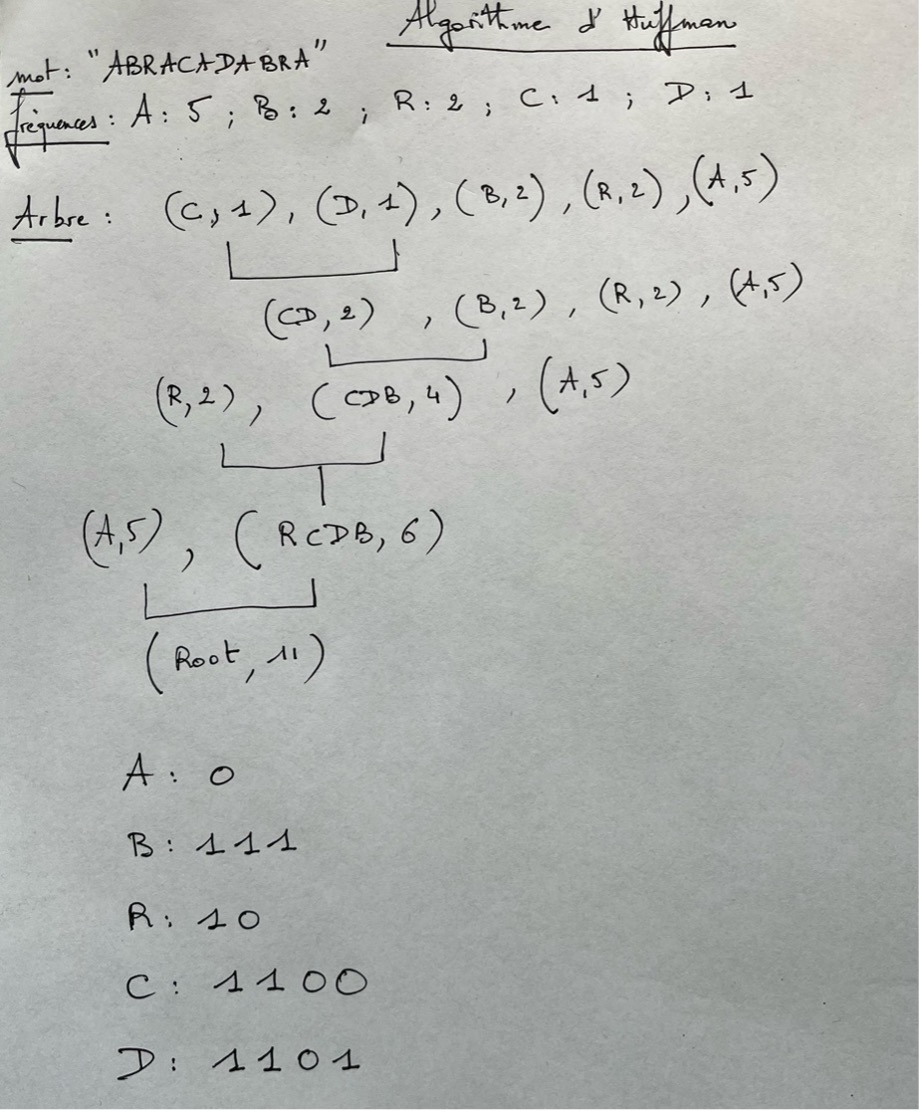 Algorithme d'Huffman
mot : "ABRACADABRA"
fréquences : A : 5 ; B : 2 ; R : 2 ; C : 1 ; D : 1
Arbre : (C, 1), (D, 1), (B, 2), (R, 2), (A, 5)
(CD, 2) , (B, 2) , (R, 2) , (A, 5)
(R, 2) , (CDB, 4) , (A, 5)
(A, 5) , (RCDB, 6)
(Root, 11)
A : 0
B : 111
R : 10
C : 1100
D : 1101